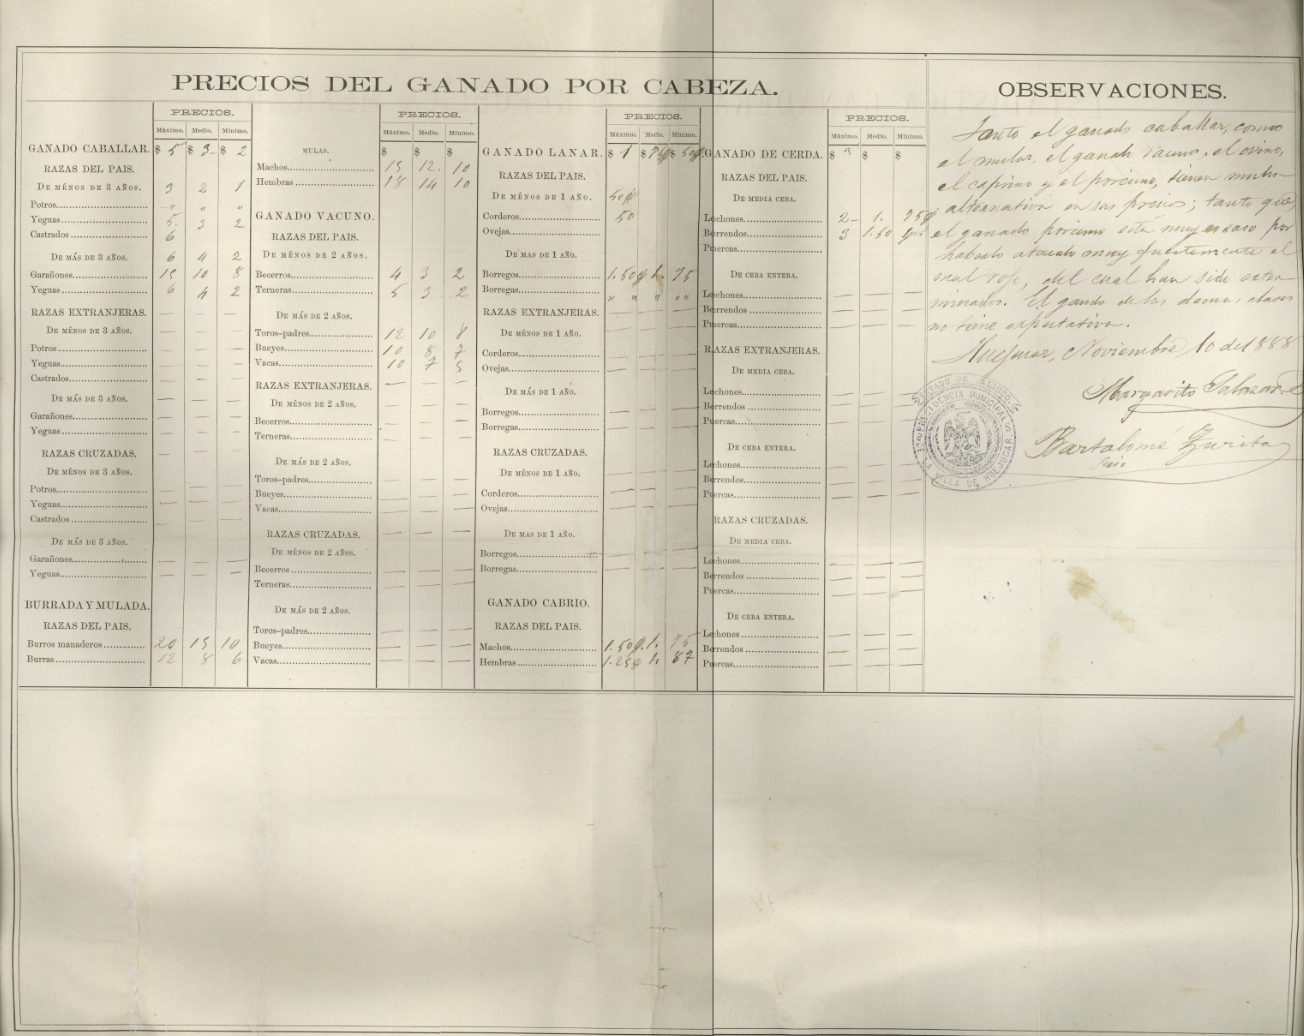 PRECIOS DEL GANADO POR CABEZA.
PRECIOS.
Máximo. Medio. Mínimo.
GANADO CABALLAR. $ 5 $ 3 $ 2
RAZAS DEL PAIS.
DE MÉNOS DE 3 AÑOS. 3 2 1
Potros " " "
Yeguas 5. 3 2
Castrados 6
DE MÁS DE 3 AÑOS. 6 4 2
Garañones 15 10 8
Yeguas 6 4 2
RAZAS EXTRANJERAS. — —
DE MÉNOS DE 3 AÑOS.
Potros — — —
Yeguas — — —
Castrados — — —
DE MÁS DE 3 AÑOS.
Garañones — — —
Yeguas — — —
RAZAS CRUZADAS. — —
DE MÉNOS DE 3 AÑOS.
Potros — — —
Yeguas — — —
Castrados — — —
DE MÁS DE 3 AÑOS.
Garañones — — —
Yeguas — — —
BURRADA Y MULADA.
RAZAS DEL PAIS.
Burros manaderos 20 15 10
Burras 12 8 6
PRECIOS.
Máximo. Medio. Mínimo.
MULAS. $ $ $
Machos 15 12. 10
Hembras 18 14 10
GANADO VACUNO.
RAZAS DEL PAIS.
DE MÉNOS DE 2 AÑOS.
Becerros 4 3 2
Terneras 5 3 2
DE MÁS DE 2 AÑOS.
Toros-padres 12 10 8
Bueyes 10 8 7
Vacas 10 7 5
RAZAS EXTRANJERAS. — —
DE MÉNOS DE 2 AÑOS.
Becerros — — —
Terneras — — —
DE MÁS DE 2 AÑOS.
Toros-padres — — —
Bueyes — — —
Vacas — — —
RAZAS CRUZADAS. — — —
DE MÉNOS DE 2 AÑOS.
Becerros — — —
Terneras — — —
DE MÁS DE 2 AÑOS.
Toros-padres — — —
Bueyes — — —
Vacas — — —
PRECIOS.
Máximo. Medio. Mínimo.
GANADO LANAR. $ 1 $ 75 $ 50
RAZAS DEL PAIS.
DE MÉNOS DE 1 AÑO. 50
Corderos 50
Ovejas
DE MAS DE 1 AÑO.
Borregos 1.50 1. 75
Borregas " " " "
RAZAS EXTRANJERAS.
DE MÉNOS DE 1 AÑO.
Corderos — — —
Ovejas — — —
DE MÁS DE 1 AÑO.
Borregos — — —
Borregas — — —
RAZAS CRUZADAS.
DE MÉNOS DE 1 AÑO.
Corderos — — —
Ovejas — — —
DE MAS DE 1 AÑO.
Borregos — — —
Borregas — — —
GANADO CABRIO.
RAZAS DEL PAIS.
Machos 1.50 1. 75
Hembras 1.25 1. 87
PRECIOS.
Máximo. Medio. Mínimo.
GANADO DE CERDA. $ $ $
RAZAS DEL PAIS.
DE MEDIA CEBA.
Lechones 2 1. 75
Berrendos 3 1.50
Puercas
DE CEBA ENTERA.
Lechones — — —
Berrendos — — —
Puercas — — —
RAZAS EXTRANJERAS.
DE MEDIA CEBA.
Lechones — — —
Berrendos — — —
Puercas — — —
DE CEBA ENTERA.
Lechones — — —
Berrendos — — —
Puercas — — —
RAZAS CRUZADAS.
DE MEDIA CEBA.
Lechones — — —
Berrendos — — —
Puercas — — —
DE CEBA ENTERA.
Lechones — — —
Berrendos — — —
Puercas — — —
OBSERVACIONES.
Tanto el ganado caballar, como
el mular, el ganado vacuno, el ovino,
el caprino y el porcino, tienen mucha
alternativa en sus precios; tanto que,
el ganado porcino está muy escaso por
haberlo atacado muy fuertemente el
mal rojo, del cual han sido exter
minados. El ganado de las demas clases
no tiene espectativa.
Huejucar, Noviembre 10 de 1888
Margarito Salazar
Bartolomé Zurita
Srio
PRESIDENCIA MUNICIPAL
VILLA DE HUEJUCAR